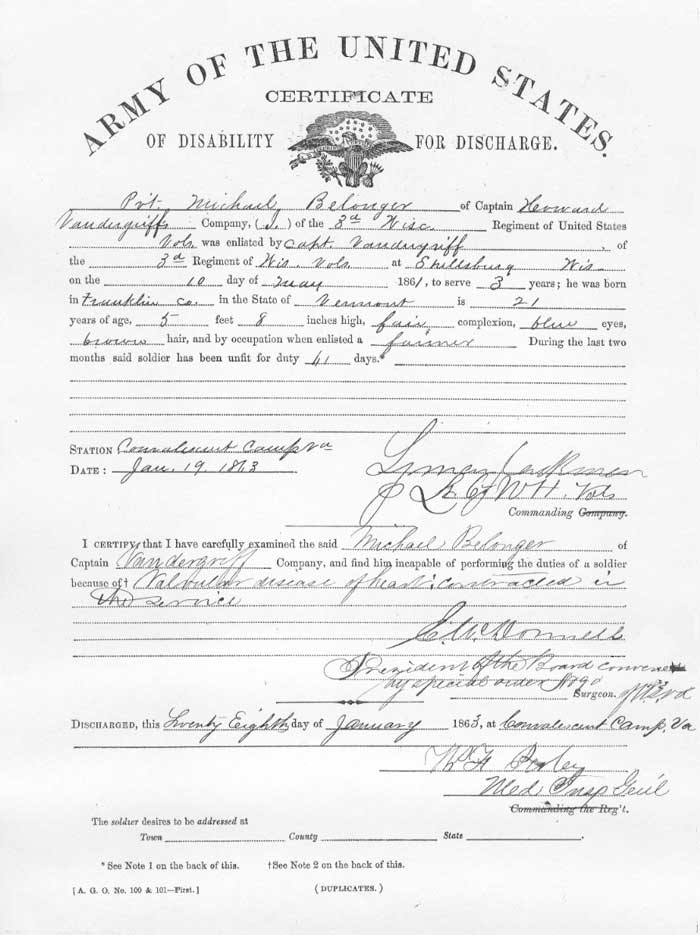 ARMY OF THE UNITED STATES.
CERTIFICATE
OF DISABILITY FOR DISCHARGE.
Pvt. Michael Belonger of Captain Howard
Vandergriffs Company, ( ) of the 3d Wisc. Regiment of United States
Vols was enlisted by Capt Vandergriff, of
the 3d Regiment of Wis. Vols at Shillsburg Wis
on the 10 day of May 1861, to serve 3 years; he was born
in Franklin Co. in the State of Vermont is 21
years of age, 5 feet 8 inches high, fair complexion, blue eyes,
brown hair, and by occupation when enlisted a farmer During the last two
months said soldier has been unfit for duty 61 days.*
STATION Convalescent Camp Va
DATE: Jan. 19 1863
Lyman
Vols
Commanding Company.
I CERTIFY, that I have carefully examined the said Michael Belonger of
Captain Vandergriff Company, and find him incapable of performing the duties of a soldier
because of† Valvular disease of heart: contracted in
the service
McDonnell
President of the Board convened
by special order No 90
Surgeon.
DISCHARGED, this Twenty Eighth day of January 1863, at Convalescent Camp, Va
Med Insp Genl
Commanding the Reg't.
The soldier desires to be addressed at
Town County State
* See Note 1 on the back of this. † See Note 2 on the back of this.
[A. G. O. No. 100 & 101—First.] (DUPLICATES.)